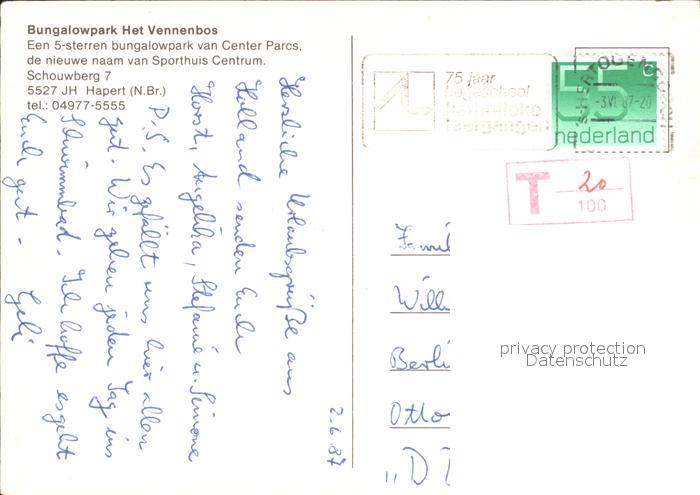 Bungalowpark Het Vennenbos
Een 5-sterren bungalowpark van Center Parcs,
de nieuwe naam van Sporthuis Centrum.
Schouwberg 7
5527 JH Hapert (N.Br.)
tel.: 04977-5555
Herzliche Urlaubsgrüße aus
Holland senden Euch
Horst, Angelika, Stefanie u. Simone
P.S. Es gefällt uns hier allen
gut. Wir gehen jeden Tag ins
Schwimmbad. Ich hoffe es geht
Euch gut -
2.6.87
75 jaar
hogeschool
technieke
leergangen
'S-HERTOGENBOSCH
-3.VI 87-20
55 c
nederland
T 20
100
Famil
Will
Berli
Otto
„D
privacy protection
Datenschutz